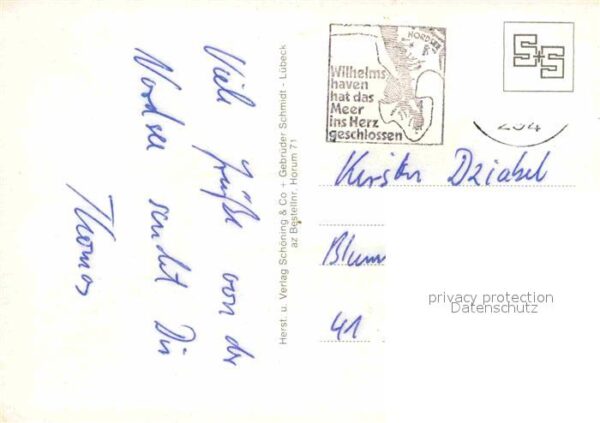 Viele Grüße von der
Nordsee sendet Dir
Thomas
Herst. u. Verlag Schöning & Co + Gebrüder Schmidt - Lübeck
az Bestellnr. Horum 71
NORDSEE
Wilhelms
haven
hat das
Meer
ins Herz
geschlossen
S+S
294
Kirsten Dziabel
Blum
41
privacy protection
Datenschutz